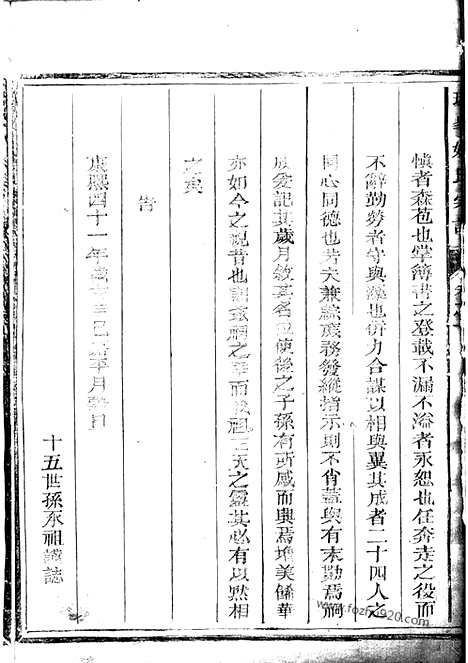 慎者森苞也掌簿書之登載不漏不溢者永恕也任奔走之役而
不辭勤勞者守與也併力合謀以相與翼其成者二十四人之
同心同德也若夫兼綜族務發縱指示則不肖蓋與有末勤焉嗣
成爰記其歲月敘其名使後之子孫有所感而興焉增美餙華
亦如今之視昔也祖之靈其必有以黙相
之矣
旹
康熙四十一年歲月日
十五世孫承祖謹誌
www.fozhu920.com